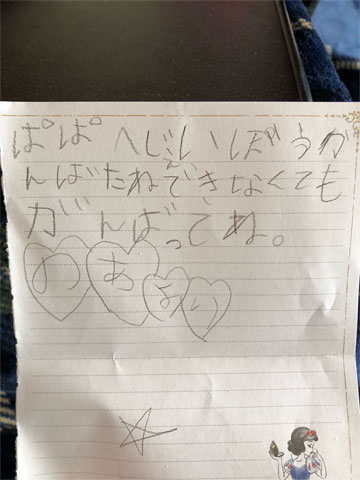 ぱぱへじぇいぼうが
んばたねできなくても
がんばってね。
のあより